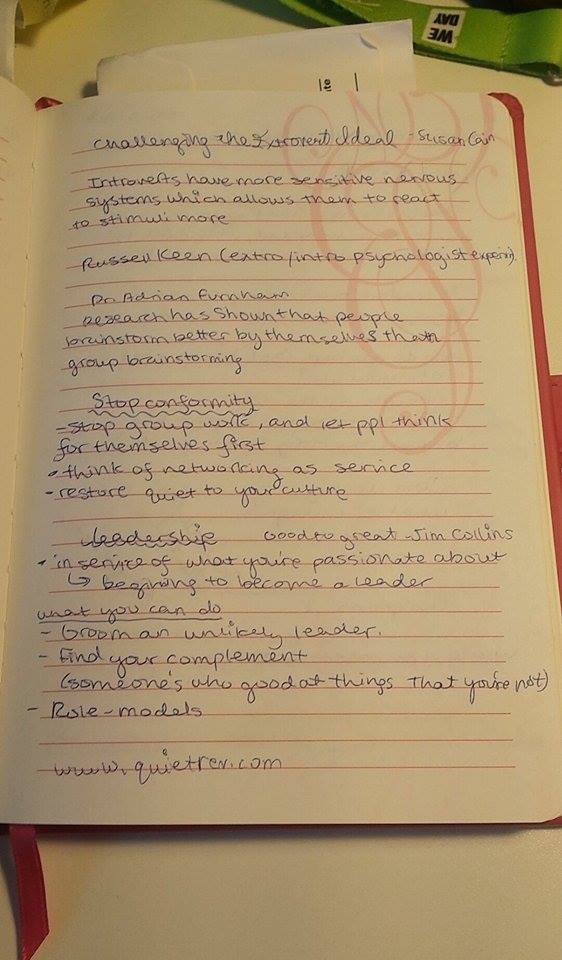 WE
DAY
ite
Challenging the Extrovert Ideal - Susan Cain
Introverts have more sensitive nervous
systems which allows them to react
to stimuli more
Russell Keen (extro/intro psychologist
Dr. Adrian Furnham
research has shown that people
brainstorm better by themselves than
group brainstorming
Stop conformity
- stop group work, and let ppl think
for themselves first
• think of networking as service
- restore quiet to your culture
Leadership Good to great - Jim Collins
• in service of what you're passionate about
↳ beginning to become a leader
what you can do
- Groom an unlikely leader.
- Find your complement
(someone's who good at things that you're not)
- Role-models
www.quietrev.com